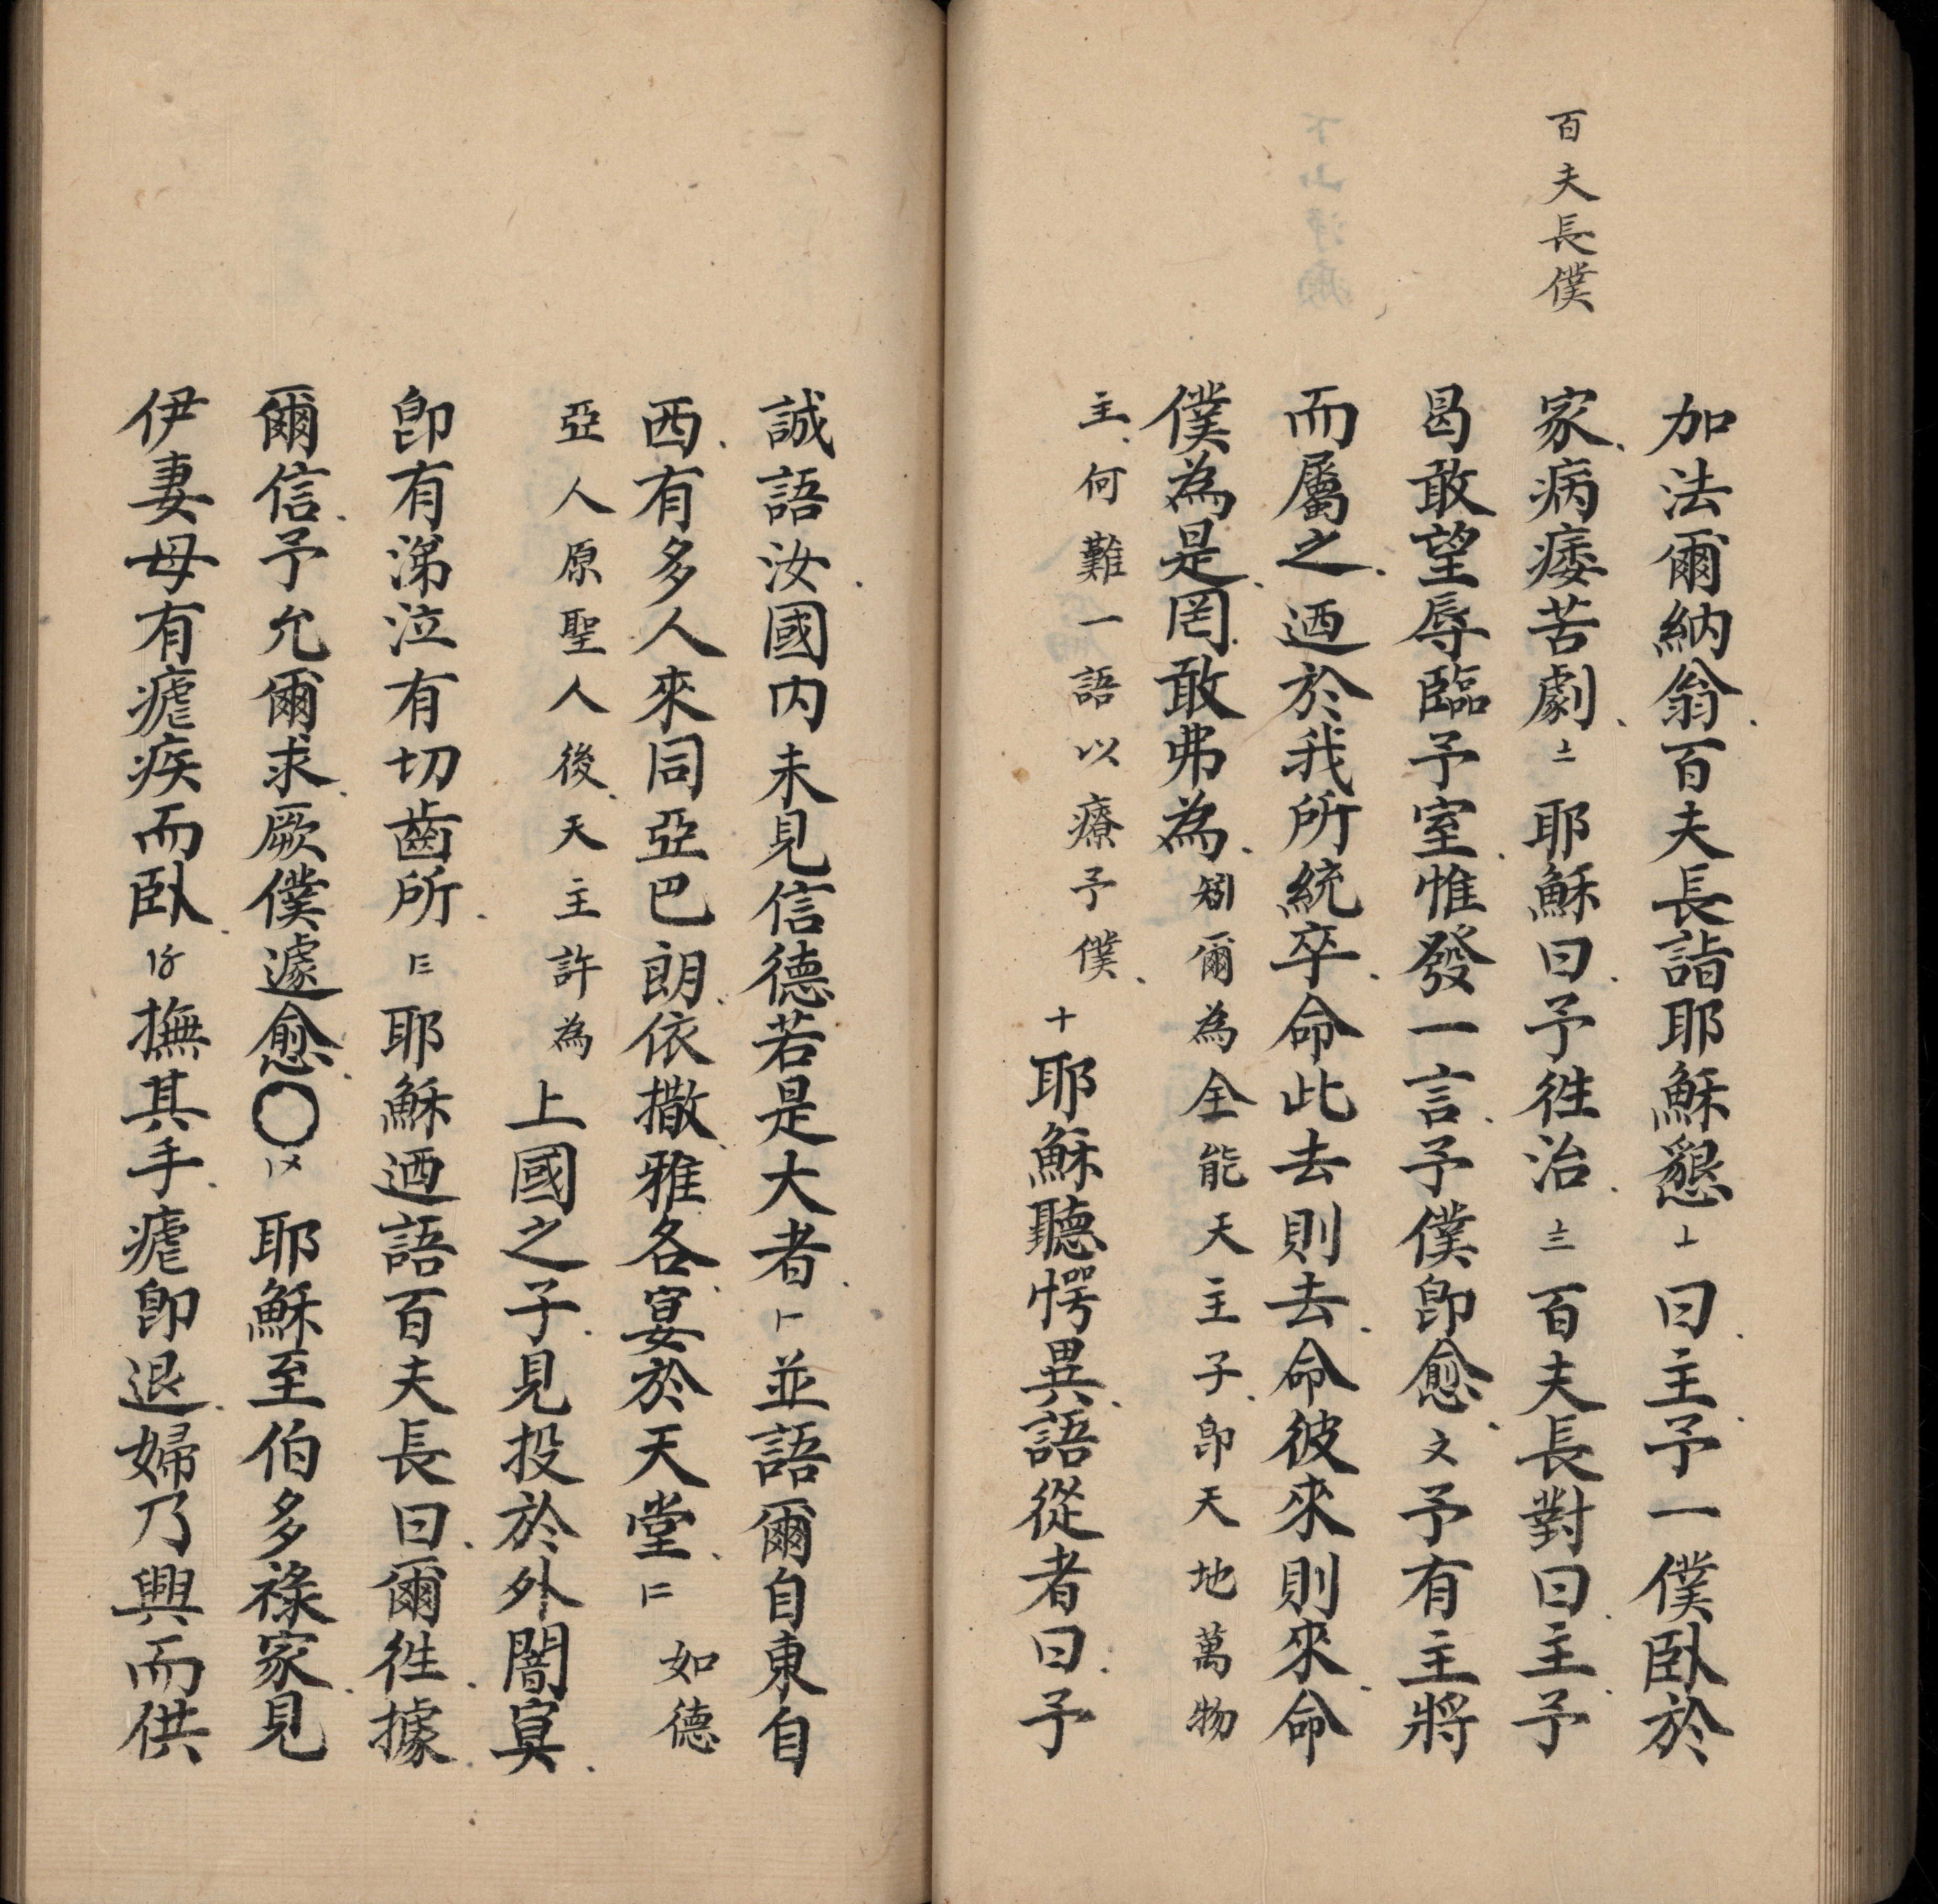 百夫長僕
加法爾納翁百夫長詣耶穌懇〦曰主予一僕臥於
家病痿苦劇〧耶穌曰予徃治〨百夫長對曰主予
曷敢望辱臨予室惟發一言予僕卽愈〩予有主將
而屬之迺於我所統卒命此去則去命彼來則來命
僕為是罔敢弗為矧爾為全能天主子卽天地萬物
主何難一語以療予僕十耶穌聽愕異語從者曰予
誠語汝國内未見信德若是大者〡並語爾自東自
西有多人來同亞巴朗依撒雅各宴於天堂〢如德
亞人原聖人後天主許為上國之子見投於外闇冥
卽有涕泣有切齒所〣耶穌迺語百夫長曰爾徃據
爾信予允爾求厥僕遽愈〇〤耶穌至伯多祿家見
伊妻母有瘧疾而臥〥撫其手瘧卽退婦乃興而供